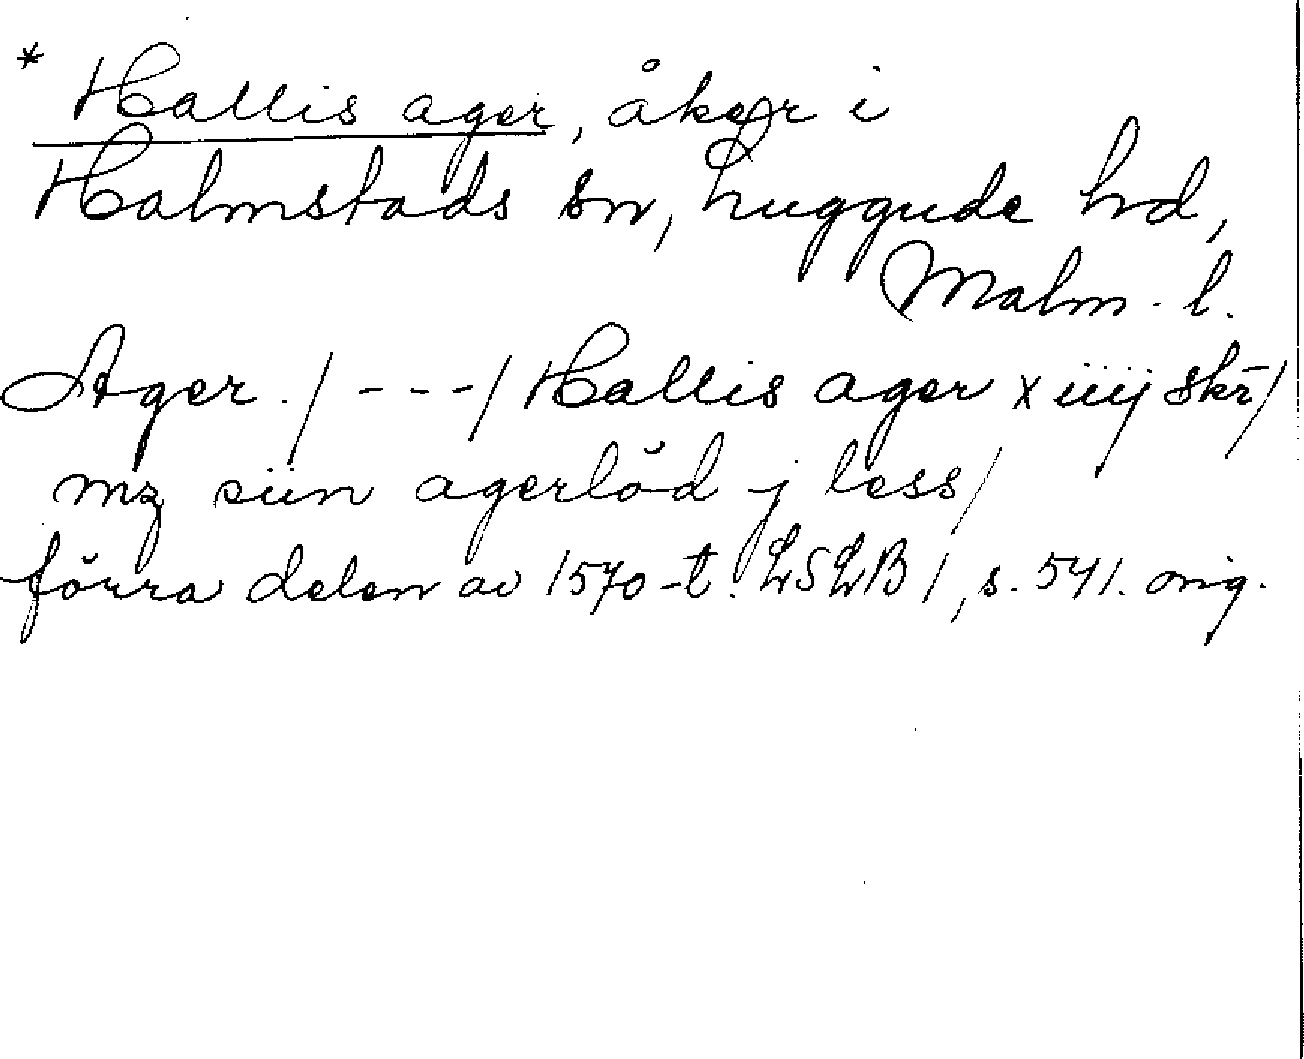 * Hallis ager, åker i
Halmstads sn, Luggude hd,
Malm. l.
Ager ./ ---/ Hallis ager x iiij skr̄/
mz siin agerlöd j less/
förra delen av 1570-t. LSLB 1, s. 541. orig.